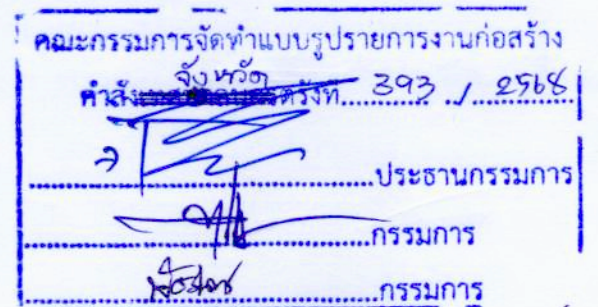 คณะกรรมการจัดทำแบบรูปรายการงานก่อสร้าง
จังหวัด
คำสั่ง ตรังที่ 393 / 2568
ประธานกรรมการ
กรรมการ
กรรมการ